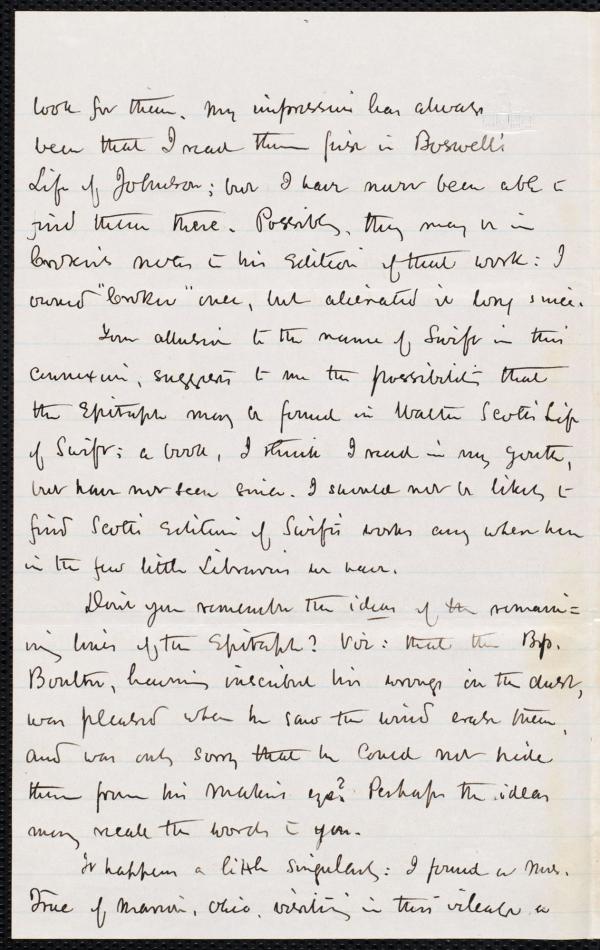 look for them. My impression has always
been that I read them first in Boswell's
Life of Johnson; but I have never been able to
find them there. Possibly, they may be in
Croker's notes to his Edition of that work: I
owned "Croker" once, but alienated it long since.
Your allusion to the name of Swift in this
connexion, suggests to me the possibility that
the Epitaph may be found in Walter Scott's Life
of Swift: a book, I think I read in my youth,
but have not seen since. I should not be likely to
find Scott's Edition of Swift's works any where here
in the few little Libraries we have.
Don't you remember the ideas of the remain=
ing lines of the Epitaph? Viz: that the Bp.
Boulter, having inscribed his wrongs in the dust,
was pleased when he saw the wind erase them,
and was only sorry that he could not hide
them from his Maker's eye? Perhaps the ideas
may recall the words to you.
It happens a little singularly: I found a Mrs.
True of Marion, Ohio, visiting in this village a